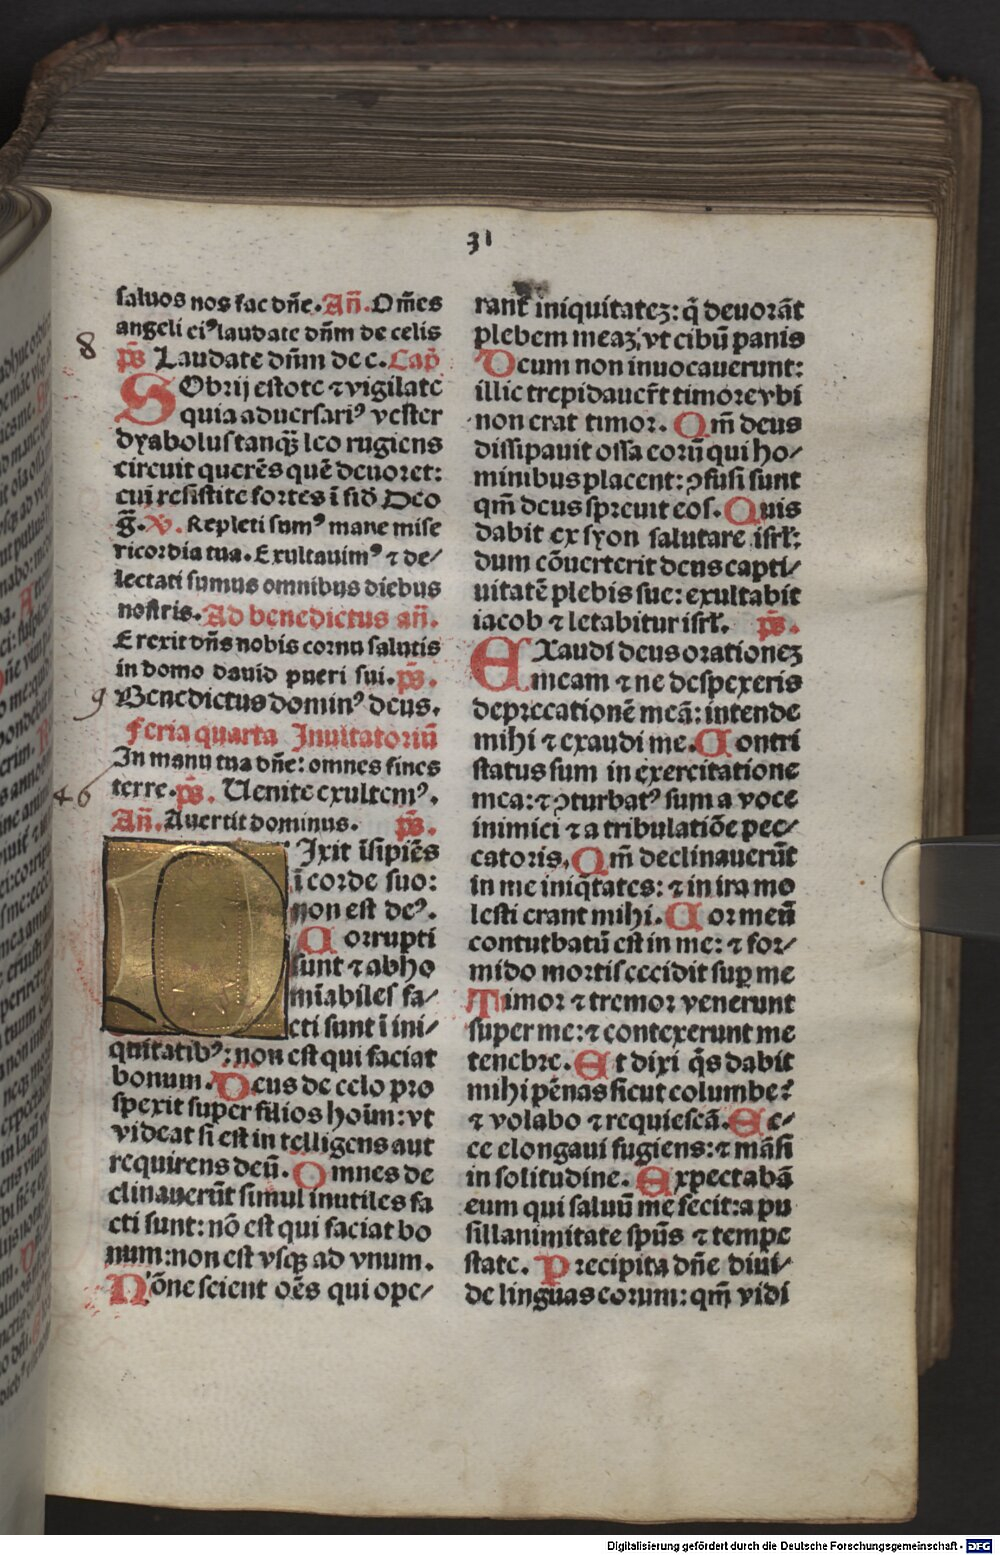 31
saluos nos fac dñe. Añ. Om̃es
angeli eiꝰ laudate dñm de celis
8
ps̄ Laudate dñm de c. Cap̄
SObrij estote ⁊ vigilate
quia aduersariꝰ vester
dyabolus tanqꝫ leo rugiens
circuit querēs quē deuoret:
cui resistite fortes ī fid̄ Deo
g̃. V̄. Repleti sumꝰ mane mise
ricordia tua. Exultauimꝰ ⁊ de/
lectati sumus omnibus diebus
nostris. Ad benedictus añ.
Erexit dñs nobis cornu salutis
in domo dauid pueri sui. ps̄.
9
Benedictus dominꝰ deus.
Feria quarta Inuitatoriū
In manu tua dñe: omnes fines
46
terre. ps̄. Uenite exultemꝰ.
Añ. Auertit dominus. ps̄.
DIxit īsipiēs
ī corde suo:
non est deꝰ.
Corrupti
sunt ⁊ abho
mīabiles fa/
cti sunt ī ini/
quitatibꝰ: non est qui faciat
bonum. Deus de celo pro
spexit super filios hoīm: vt
videat si est in telligens aut
requirens deū. Omnes de
clinauerūt simul inutiles fa
cti sunt: nō est qui faciat bo
num: non est vsqꝫ ad vnum.
Nōne scient oēs qui ope/
rant̄ iniquitateꝫ: q̄ deuorāt
plebem meaꝫ, vt cibū panis
Deum non inuocauerunt:
illic trepidauer̄t timore vbi
non erat timor. Qm̄ deus
dissipauit ossa eorū qui ho/
minibus placent: ꝯfusi sunt
qm̄ deus spreuit eos. Quis
dabit ex syon salutare isrl̄:
dum cōuerterit deus capti/
uitatē plebis sue: exultabit
iacob ⁊ letabitur isrl̄. ps̄.
EXaudi deus orationeꝫ
meam ⁊ ne despexeris
deprecationē meā: intende
mihi ⁊ exaudi me. Contri
status sum in exercitatione
mea: ⁊ ꝯturbatꝰ sum a voce
inimici ⁊ a tribulatiōe pec/
catoris. Qm̄ declinauerūt
in me iniq̄tates: ⁊ in ira mo
lesti erant mihi. Cor meū
conturbatū est in me: ⁊ for/
mido mortis cecidit suꝑ me
Timor ⁊ tremor venerunt
super me: ⁊ contexerunt me
tenebre. Et dixi q̄s dabit
mihi pēnas sicut columbe?
⁊ volabo ⁊ requiescā. Ec/
ce elongaui fugiens: ⁊ māsi
in solitudine. Expectabā
eum qui saluū me fecit: a pu
sillanimitate spūs ⁊ tempe
state. Precipita dñe diui/
de linguas eorum: qm̄ vidi
Digitalisierung gefördert durch die Deutsche Forschungsgemeinschaft - DFG